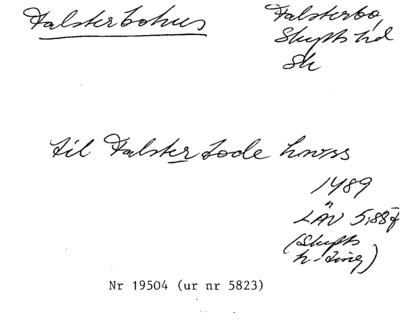 Falsterbohus
Falsterbo,
Skytts hd
Sk
til Falsterbode hwss
1489
LÄU 5,88f
(Skytts
h-ting)
Nr 19504 (ur nr 5823)